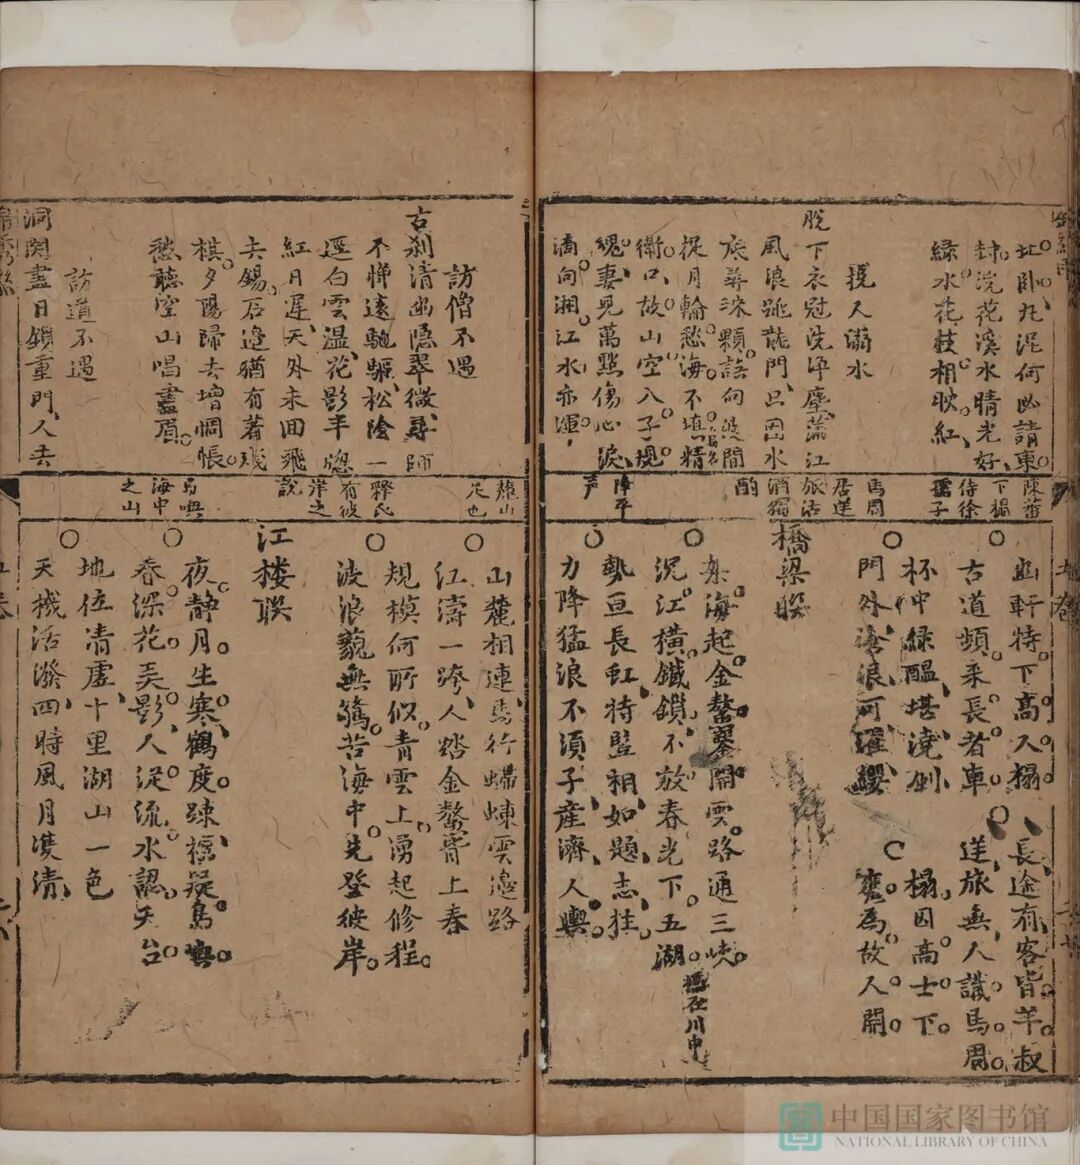 址臥丸泥何必請東
封浣花溪水晴光好
綠水花枝相映紅
挽人溺水
脫下衣冠洗淨塵滿江
風浪跳龍門只因水
底尋深顆誤向波間
捉月輪愁海不填精
衛口故山空入子規
魂妻見萬點傷心淚
滴向湘江水亦渾
陳蕃
下榻
待徐
孺子
馬周
居逆
旅沽
酒獨
酌
降平
声
幽軒特下高人榻
古道頻來長者車
杯中綠醞堪澆劍
門外滄浪可濯纓
長途有客皆羊叔
逆旅無人識馬周
榻因高士下
甕為故人開
橋梁聯
架海起金鰲翼開雲路通三峽
沉江橫鐵鎖不放春光下五湖 橋在川中
勢亘長虹特監相如題志柱
力降猛浪不須子産濟人輿
訪僧不遇
古剎清幽隱翠微尋師
不憚遠馳驅松陰一
逕白雲溫花影半窻
紅日遲天外未回飛
去錫石邊猶有著殘
棋夕陽歸去增惆悵
愁聽空山唱畫眉
訪道不遇
洞関盡日鎖重門人去
麓山
足也
釋氏
有彼
岸之
説
島嶼
海中
之山
山麓相連馬行螮蝀雲邊路
江濤一跨人踏金鰲脊上春
規模何所似青雲上湧起修程
波浪藐無驚苦海中先登彼岸
江楼联
夜靜月生寒鶴度踈櫺疑島嶼
春深花弄影人從流水認天台
地位清虛十里湖山一色
天機活潑四時風月雙清
中国国家图书馆
NATIONAL LIBRARY OF CHINA